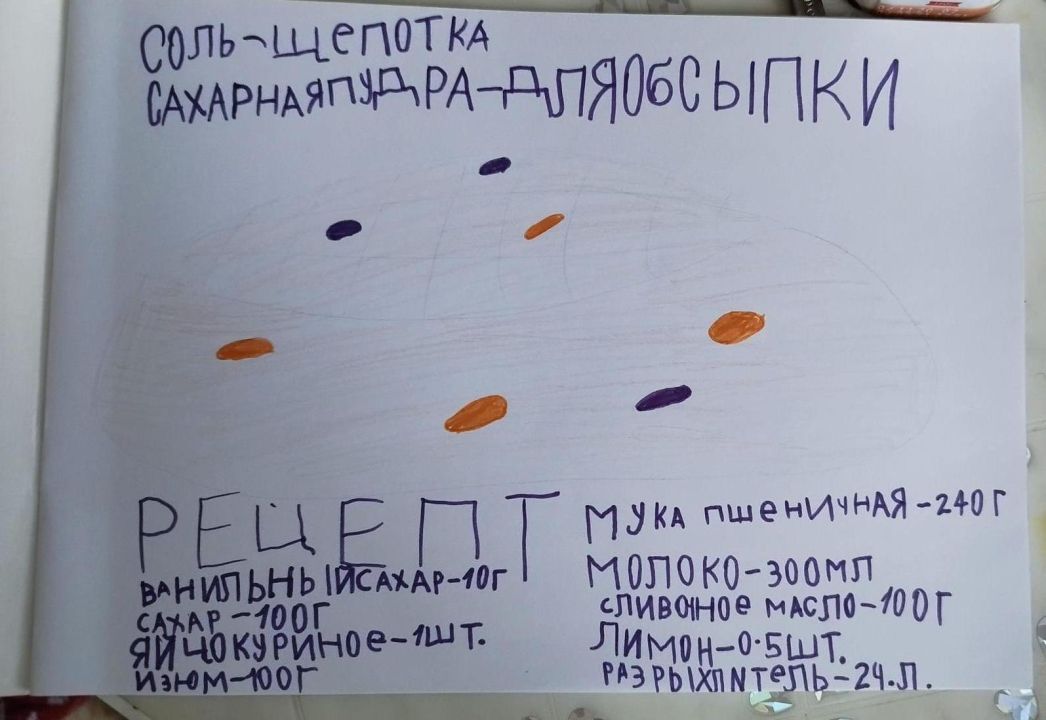 СОЛЬ-ЩЕПОТКА
САХАРНАЯПУДРА-ДЛЯОБСЫПКИ
РЕЦЕПТ
ВАНИЛЬНЫЙСАХАР-10Г
САХАР-100Г
ЯЙЦОКУРИНОЕ-1ШТ.
ИЗЮМ-100Г
МУКА ПШЕНИЧНАЯ-240Г
МОЛОКО-300МЛ
СЛИВОЧНОЕ МАСЛО-100Г
ЛИМОН-0.5ШТ.
РАЗРЫХЛИТЕЛЬ-2Ч.Л.